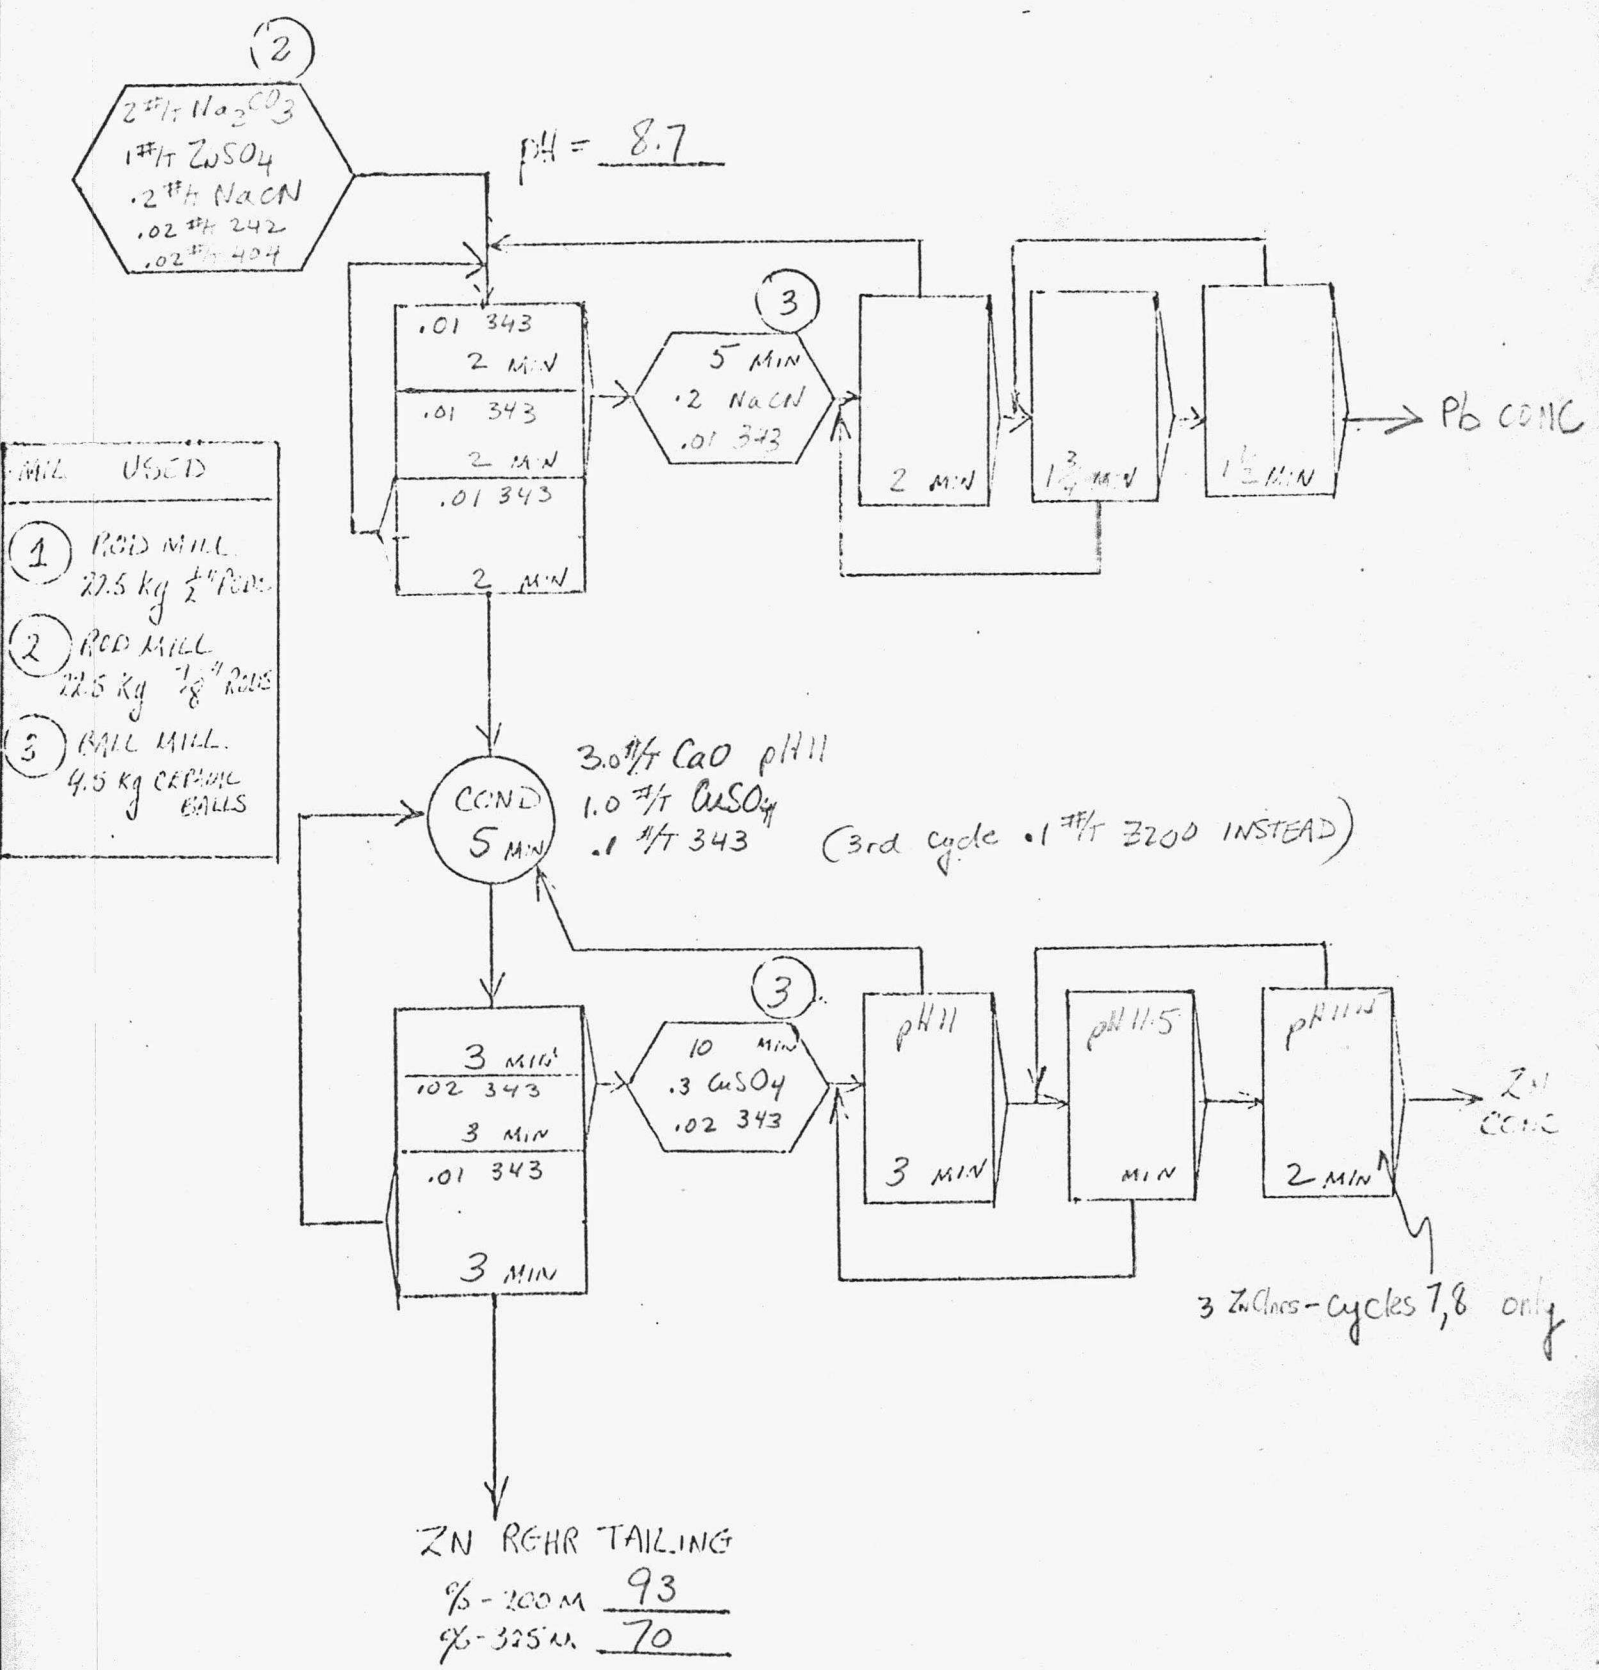 2
2 #/T Na2CO3
1 #/T ZnSO4
.2 #/T NaCN
.02 #/T 242
.02 #/T 404
pH = 8.7
.01 343
2 MIN
.01 343
2 MIN
.01 343
2 MIN
3
5 MIN
.2 NaCN
.01 343
2 MIN
1 3/4 MIN
1 1/2 MIN
Pb CONC
MIL USED
1 ROD MILL
22.5 kg 1/2" RODS
2 ROD MILL
22.5 Kg 7/8" RODS
3 BALL MILL.
4.5 kg CERAMIC
BALLS
COND
5 MIN
3.0 #/T CaO pH 11
1.0 #/T CuSO4
.1 #/T 343 (3rd cycle .1 #/T Z200 INSTEAD)
3 MIN
.02 343
3 MIN
.01 343
3 MIN
3
10 MIN
.3 CuSO4
.02 343
pH 11
3 MIN
pH 11.5
MIN
2 MIN
ZN
CONC
3 Zn Clnrs - cycles 7,8 only
ZN REHR TAILING
% - 200 M 93
% - 325 M 70